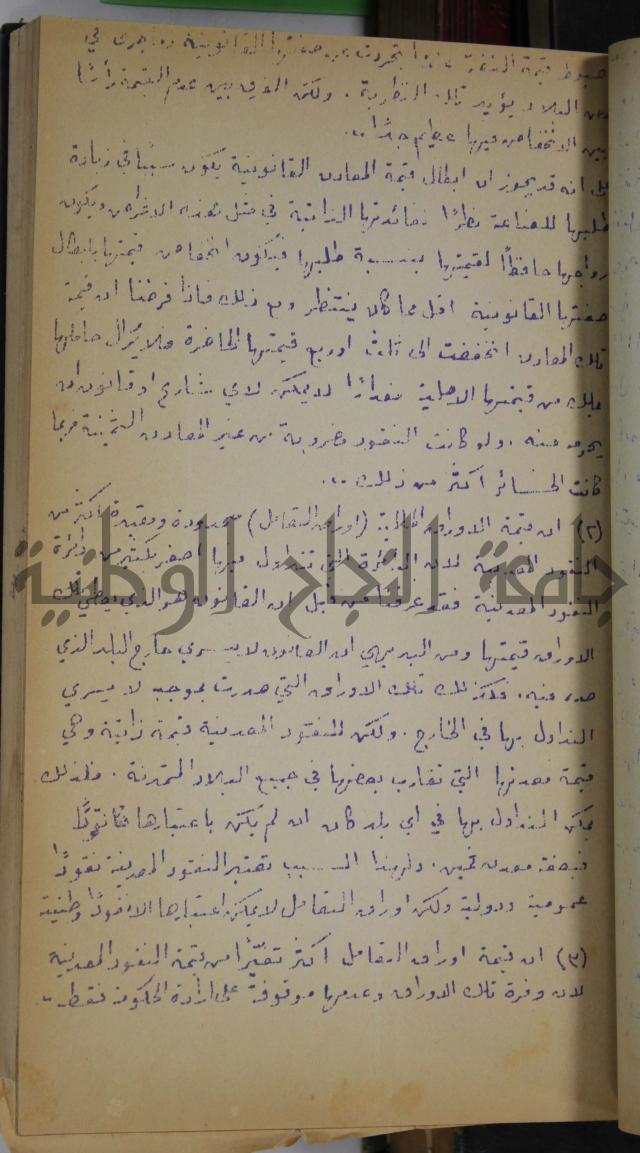 هبوط قيمة النقود إذا تجردت من صفتها القانونية وما جرى في
بعض البلاد يؤيد تلك النظرية. ولكن الفرق بين عدم القيمة رأسًا
بين الانخفاض فيها عظيم جدًا..
على انه قد يجوز ان ابطال قيمة المعادن القانونية يكون سببًا في زيادة
طلبها للصناعة نظرًا لفائدتها الذاتية في مثل هذه الاغراض ويكون
رواجها حافظًا لقيمتها بنسبة طلبها فيكون انخفاض قيمتها بابطال
صفتها القانونية اقل مما كان ينتظر ومع ذلك فاذا فرضنا ان قيمة
تلك المعادن انخفضت الى ثلث او ربع قيمتها الحاضرة فلا يزال حاملها
يملك من قيمتها الاصلية مقدارًا لا يمكن لاي شارع او قانون ان
يحرمه منه. ولو كانت النقود مضروبة من غير المعادن الثمينة فربما
كانت الخسائر اكثر من ذلك..
(٢) ان قيمة الاوراق المالية (اوراق التعامل) محدودة ومقيدة اكثر من
النقود المعدنية لان الدائرة التي تتداول فيها اصغر بكثير من دائرة
النقود المعدنية فقد عرفنا من قبل ان القانون هو الذي يعطي تلك
الاوراق قيمتها ومن البديهي ان القانون لا يسري خارج البلد الذي
صدر فيه. فكذلك تلك الاوراق التي صدرت بموجبه لا يسري
التداول بها في الخارج. ولكن للنقود المعدنية قيمة ذاتية وهي
قيمة معدنها التي تقارب بعضها في جميع البلاد المتمدنة. فلذلك
يمكن التداول بها في اي بلد كان ان لم يكن باعتبارها قانونيًا
فبصفة معدن ثمين. ولهذا السبب تعتبر النقود المعدنية نقودًا
عمومية ودولية ولكن اوراق التعامل لا يمكن اعتبارها الا نقودًا وطنية
(٣) ان قيمة اوراق التعامل اكثر تغيّرًا من قيمة النقود المعدنية
لان وفرة تلك الاوراق وعدمها موقوفة على ارادة الحكومة فقط..
جامعة النجاح الوطنية